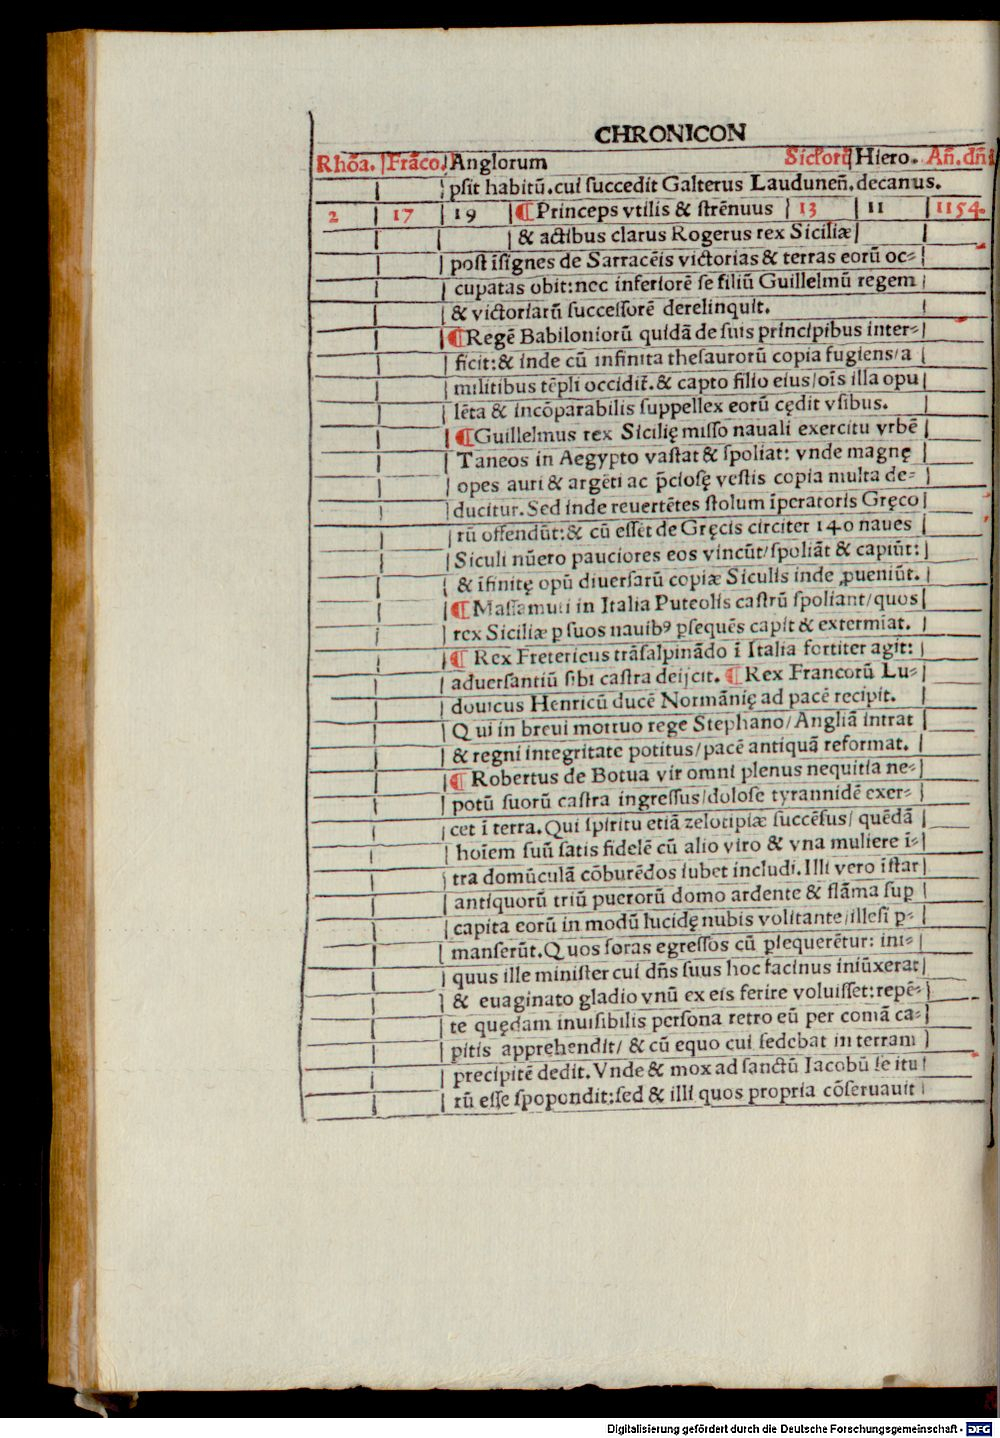 CHRONICON
Rhōa. Frāco. Anglorum Sicĺorū Hiero. An̄. dn̄i
pſit habitū. cui ſuccedit Galterus Laudunen̄. decanus.
2 17 19 ¶Princeps vtilis & ſtrēnuus 13 11 1154.
& actibus clarus Rogerus rex Siciliæ
poſt īſignes de Sarracēis victorias & terras eorū oc⸗
cupatas obit: nec inferiorē ſe filiū Guillelmū regem
& victoriarū ſucceſſorē derelinquit.
¶Regē Babiloniorū quidā de ſuis principibus inter⸗
ficit: & inde cū infinita theſaurorū copia fugiens/a
militibus tēpli occidit̄. & capto filio eius/oīs illa opu
lēta & incōparabilis ſuppellex eorū cędit vſibus.
¶Guillelmus rex Sicilię miſſo nauali exercitu vrbē
Taneos in Aegypto vaſtat & ſpoliat: vnde magnę
opes auri & argēti ac p̄cioſę veſtis copia multa de⸗
ducitur. Sed inde reuertētes ſtolum īperatoris Gręco
rū offendūt: & cū eſſet de Gręcis circiter 140 naues
Siculi nūero pauciores eos vincūt/ſpoliāt & capiūt:
& īfinitę opū diuerſarū copiæ Siculis inde ꝓueniūt.
¶Maſſamuti in Italia Puteolis caſtrū ſpoliant/quos
rex Siciliæ ꝑ ſuos nauibꝰ ꝑſequēs capit & extermīat.
¶ Rex Fretericus trāſalpināndo ī Italia fortiter agit:
aduerſantiū ſibi caſtra deijcit. ¶Rex Francorū Lu⸗
douicus Henricū ducē Normānię ad pacē recipit.
Qui in breui mortuo rege Stephano/Angliā intrat
& regni integritate potitus/pacē antiquā reformat.
¶ Robertus de Botua vir omni plenus nequitia ne⸗
potū ſuorū caſtra ingreſſus/doloſe tyrannidē exer⸗
cet ī terra. Qui ſpiritu etiā zelotipiæ ſuccēſus/ quēdā
hoīem ſuū ſatis fidelē cū alio viro & vna muliere ī⸗
tra domūculā cōburēdos iubet includi. Illi vero īſtar
antiquorū triū puerorū domo ardente & flāma ſuꝑ
capita eorū in modū lucidę nubis volitante/illeſi ꝑ⸗
manſerūt. Quos foras egreſſos cū ꝑſequerētur: ini⸗
quus ille miniſter cui dn̄s ſuus hoc facinus iniūxerat
& euaginato gladio vnū ex eis ferire voluiſſet: repē⸗
te quędam inuiſibilis perſona retro eū per comā ca⸗
pitis apprehendit/ & cū equo cui ſedebat in terram
precipitē dedit. Vnde & mox ad ſanctū Iacobū ſe itu
rū eſſe ſpopondit: ſed & illi quos propria cōſeruauit
Digitalisierung gefördert durch die Deutsche Forschungsgemeinschaft - DFG